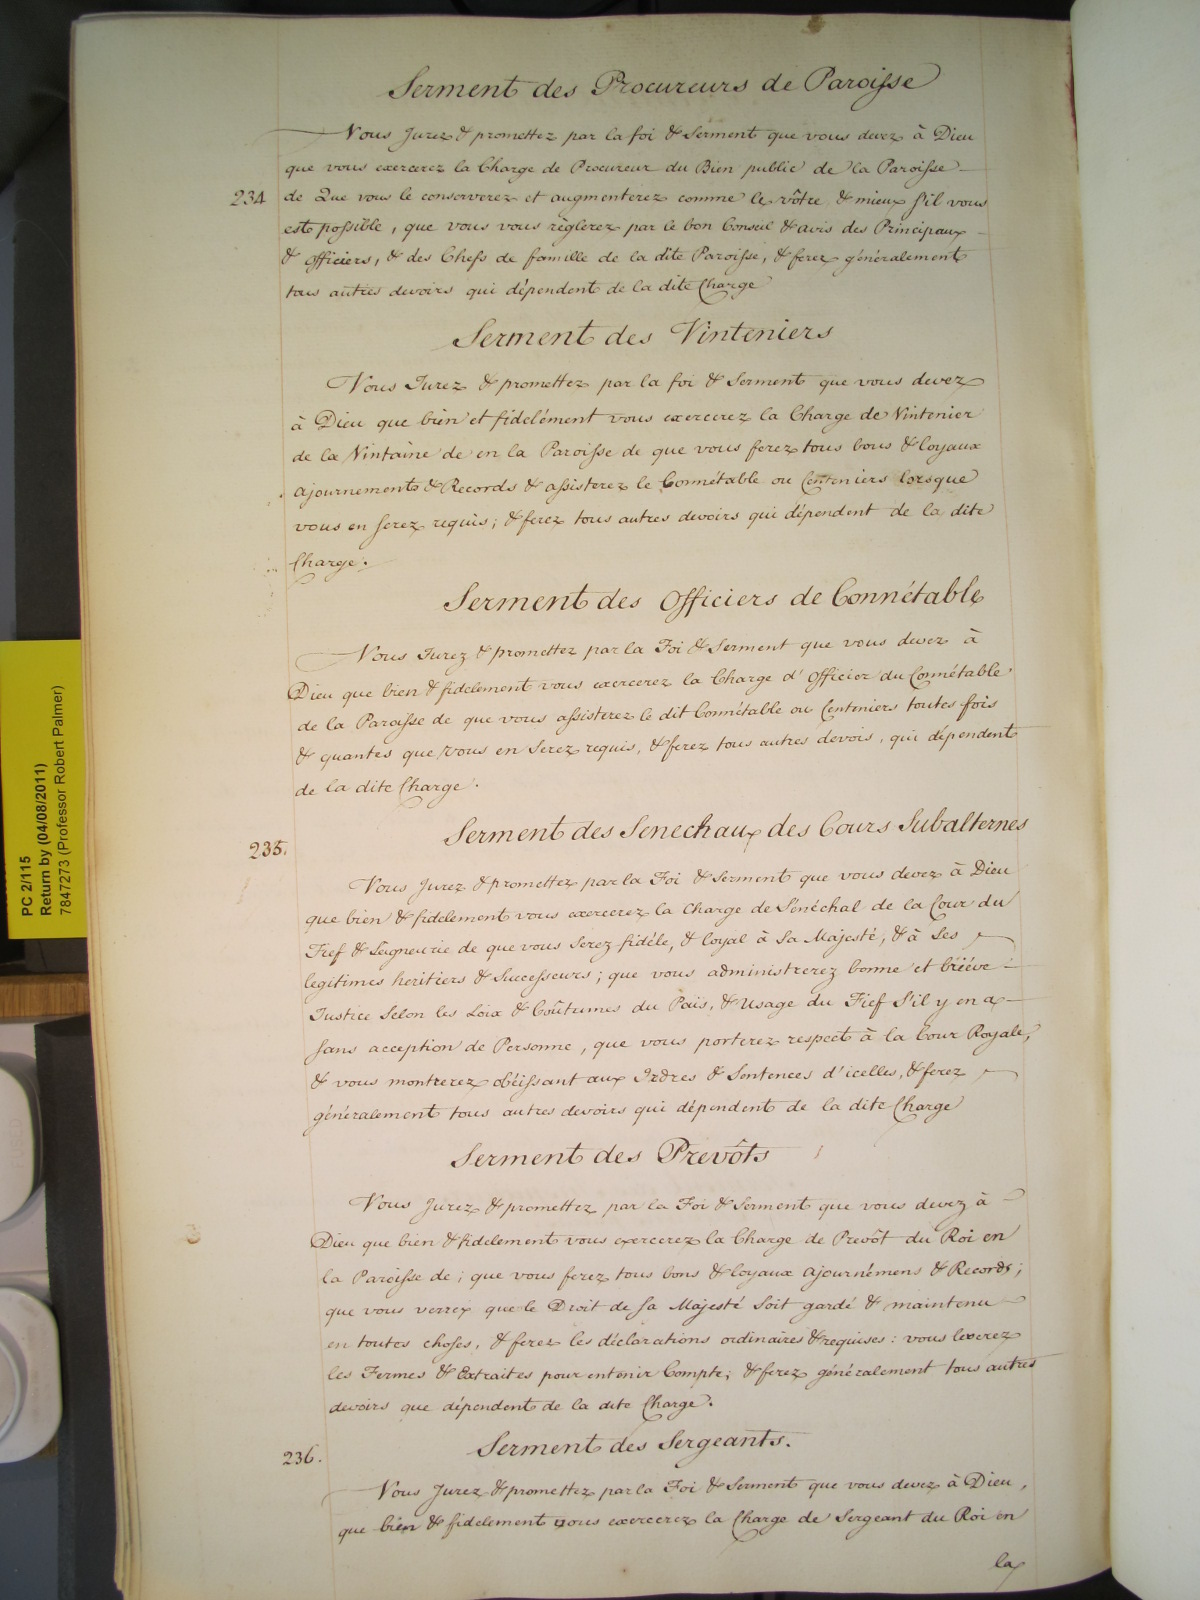 Serment des Procureurs de Paroisse
Vous Jurez & promettez par la foi & Serment que vous devez à Dieu
que vous exercerez la Charge de Procureur du Bien public de la Paroisse
234 de Que vous le conserverez et augmenterez comme le vôtre & mieux s'il vous
est possible, que vous vous règlerez par le bon Conseil & avis des Principaux
& Officiers, & des Chefs de famille de la dite Paroisse, & ferez généralement
tous autres devoirs qui dépendent de la dite Charge
Serment des Vinteniers
Vous Jurez & promettez par la foi & Serment que vous devez
à Dieu que bien et fidélément vous exercerez la Charge de Vintenier
de la Vintaine de en la Paroisse de que vous ferez tous bons & loyaux
ajournements & Records & assisterez le Connétable ou Centeniers lorsque
vous en serez requis; & ferez tous autres devoirs qui dépendent de la dite
Charge.
Serment des Officiers de Connétable
Vous Jurez & promettez par la Foi & Serment que vous devez à
Dieu que bien & fidelement vous exercerez la Charge d'Officier du Connétable
de la Paroisse de que vous assisterez le dit Connétable ou Centeniers toutes fois
& quantes que vous en Serez requis, & ferez tous autres devois, qui dépendent
de la dite Charge.
Serment des Senechaux des Cours Subalternes
235.
Vous Jurez & promettez par la Foi & Serment que vous devez à Dieu
que bien & fidelement vous exercerez la Charge de Sénéchal de la Cour du
Fief & Seigneurie de que vous Serez fidéle, & loyal à Sa Majesté, & à Ses
legitimes heritiers & Successeurs; que vous administrerez bonne et briéve
Justice Selon les Loix & Coûtumes du Païs, & Usage du Fief S'il y en a
sans acception de Personne, que vous porterez respect à la Cour Royale,
& vous montrerez obéissant aux Ordres & Sentences d'icelles, & ferez
généralement tous autres devoirs qui dépendent de la dite Charge
Serment des Prevôts
Vous Jurez & promettez par la Foi & Serment que vous devez à
Dieu que bien & fidelement vous exercerez la Charge de Prevôt du Roi en
la Paroisse de; que vous ferez tous bons & loyaux ajournémens & Records;
que vous verrez que le Droit de sa Majesté Soit gardé & maintenu
en toutes choses, & ferez les déclarations ordinaires & requises: vous leverez
les Fermes & Extraites pour en tenir Compte; & ferez généralement tous autres
devoirs que dépendent de la dite Charge.
Serment des Sergeants.
236.
Vous Jurez & promettez par la Foi & Serment que vous devez à Dieu,
que bien & fidelement vous exercerez la Charge de Sergeant du Roi en
la
PC 2/115
Return by (04/08/2011)
7847273 (Professor Robert Palmer)